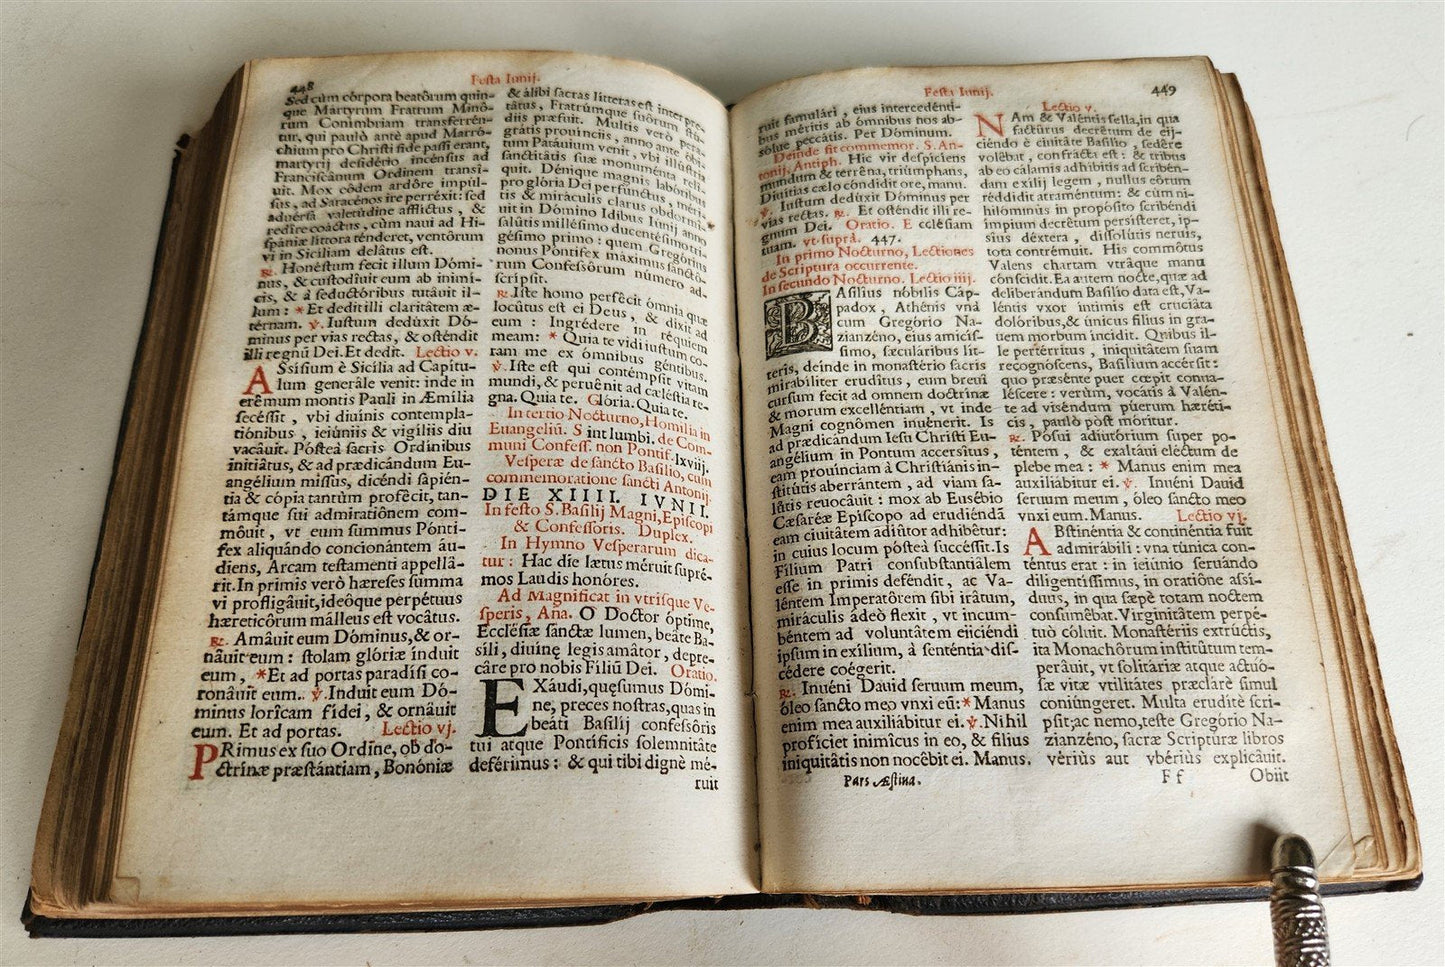 448
Festa Iunij.
Sed cùm córpora beatôrum quin-
que Mártyrum Fratrum Minô-
rum Conimbriam transferrén-
tur, qui paulò antè apud Marró-
chium pro Christi fide passi erant,
martyrij desidério incénsus ad
Franciscânum Ordinem transí-
uit. Mox eôdem ardôre impúl-
sus, ad Saracénos ire perréxit: sed
aduérsa valetúdine afflíctus, &
redîre coáctus, cùm naui ad Hi-
spániæ líttora ténderet, ventôrum
vi in Sicíliam delâtus est.
℟. Honéstum fecit illum Dómi-
nus, & custodîuit eum ab inimí-
cis, & à seductóribus tutâuit il-
lum: * Et dedit illi claritâtem æ-
térnam. ℣. Iustum dedúxit Dó-
minus per vias rectas, & osténdit
illi regnũ Dei. Et dedit. Lectio v.
ASsísium è Sicília ad Capítu-
lum generâle venit: inde in
erêmum montis Pauli in Æmília
secéssit, vbi diuínis contempla-
tiónibus, ieiúniis & vigíliis diu
vacâuit. Pósteà sacris Ordínibus
initiâtus, & ad prædicándum Eu-
angélium missus, dicéndi sapién-
tia & cópia tantùm profècit, tan-
támque sui admiratiônem com-
môuit, vt eum summus Pónti-
fex aliquándo concionántem áu-
diens, Arcam testamenti appellâ-
rit. In primis verò hæreses summa
vi profligâuit, ideôque perpétuus
hæreticôrum málleus est vocâtus.
℟. Amâuit eum Dóminus, & or-
nâuit eum: stolam glóriæ índuit
eum, * Et ad portas paradísi co-
ronâuit eum. ℣. Induit eum Dó-
minus lorîcam fídei, & ornâuit
eum. Et ad portas. Lectio vj.
PRimus ex suo Ordíne, ob do-
ctrînæ præstántiam, Bonóniæ
& álibi sacras lítteras est interpre-
tâtus, Fratrúmque suôrum stú-
diis præfuit. Multis verò pera-
grátis prouínciis, anno ante óbi-
tum Patáuium venit, vbi illústria
sanctitâtis suæ monuménta relí-
quit. Dénique magnis labóribus
pro glória Dei perfúnctus, méri-
tis & miráculis clarus obdormí-
uit in Dómino Idibus Iunij anno
salûtis millésimo ducentésimo tri-
gésimo primo: quem Gregórius
nonus Póntifex máximus sanctô-
rum Confessôrum número ad-
scripsit.
℟. Iste homo perfêcit ómnia quæ
locûtus est ei Deus, & dixit ad
eum: Ingrédere in réquiem
meam: * Quia te vidi iustum co-
ram me ex ómnibus géntibus.
℣. Iste est qui contémpsit vitam
mundi, & peruênit ad cæléstia re-
gna. Quia te. Glória. Quia te.
In tertio Nocturno, Homilia in
Euangeliũ. Sint lumbi. de Com-
muni Confess. non Pontif. lxviij.
Vesperæ de sancto Basilio, cum
commemoratione sancti Antonij.
DIE XIIII. IVNII.
In festo S. Basilij Magni, Episcopi
& Confessoris. Duplex.
In Hymno Vesperarum dica-
tur: Hac die lætus méruit supré-
mos Laudis honóres.
Ad Magnificat in vtrisque Ve-
speris, Aña. O Doctor óptime,
Ecclésiæ sanctæ lumen, beáte Ba-
síli, diuinę legis amâtor, depre-
câre pro nobis Fíliũ Dei. Oratio.
EXáudi, quęsumus Dómi-
ne, preces nostras, quas in
beáti Basílij confessôris
tui atque Pontíficis solemnitâte
deférimus: & qui tibi dignè mé-
ruit
Festa Iunij.
449
ruit famulári, eius intercedénti-
bus méritis ab ómnibus nos ab-
sólue peccátis. Per Dóminum.
Deinde fit commemor. S. An-
tonij. Antiph. Hic vir despíciens
mundum & terrêna, triúmphans,
Diuítias cælo cóndidit ore, manu.
℣. Iustum dedúxit Dóminus per
vias rectas. ℟. Et osténdit illi re-
gnum Dei. Oratio. Ecclésiam
tuam. vt suprà. 447.
In primo Nocturno, Lectiones
de Scriptura occurrente.
In secundo Nocturno. Lectio iiij.
BAsílius nóbilis Cáp-
padox, Athénis vnà
cum Gregório Na-
zianzéno, eius amicís-
simo, sæculáribus lít-
teris, deinde in monastério sacris
mirabíliter erudîtus, eum breui
cursum fecit ad omnem doctrinæ
& morum excelléntiam, vt inde
Magni cognômen inuênerit. Is
ad prædicándum Iesu Christi Eu-
angélium in Pontum accersîtus,
eam prouínciam à Christiánis in-
stitûtis aberrántem, ad viam sa-
lûtis reuocâuit: mox ab Eusébio
Cæsaréæ Epíscopo ad erudiéndã
eam ciuitâtem adiûtor adhibêtur:
in cuius locum pósteà succéssit. Is
Fílium Patri consubstantiâlem
esse in primis deféndit, ac Va-
léntem Imperatôrem sibi irâtum,
miráculis ádeò flexit, vt incum-
béntem ad voluntâtem eiiciéndi
ipsum in exílium, à senténtia dis-
cédere coégerit.
℟. Inuéni Dauid seruum meum,
óleo sancto meo vnxi eũ: * Manus
enim mea auxiliábitur ei. ℣. Nihil
profíciet inimîcus in eo, & fílius
iniquitâtis non nocêbit ei. Manus.
Pars Æstiua.
Lectio v.
NAm & Valéntis sella, in qua
factûrus decrêtum de eij-
ciéndo è ciuitâte Basílio, sedêre
volêbat, confrácta est: & tribus
ab eo cálamis adhíbitis ad scribén-
dam exílij legem, nullus eôrum
réddidit atraméntum: & cùm ni-
hilóminus in propósito scribéndi
ímpium decrêtum persísteret, ip-
sius déxtera, dissolútis neruis,
tota contrémuit. His commôtus
Valens chartam vtrâque manu
conscídit. Ea autem nocte, quæ ad
deliberándum Basílio data est, Va-
léntis vxor íntimis est cruciâta
dolóribus, & únicus fílius in gra-
uem morbum íncidit. Quibus il-
le pertérritus, iniquitâtem suam
recognóscens, Basílium accérsit:
quo præsénte puer cœpit conua-
léscere: verùm, vocátis à Valén-
te ad viséndum púerum hæréti-
cis, paulò pòst móritur.
℟. Pósui adiutórium super po-
téntem, & exaltáui eléctum de
plebe mea: * Manus enim mea
auxiliábitur ei. ℣. Inuéni Dauid
seruum meum, óleo sancto meo
vnxi eum. Manus. Lectio vj.
ABstinéntia & continéntia fuit
admirábili: vna túnica con-
téntus erat: in ieiúnio seruándo
diligentíssimus, in oratiône assí-
duus, in qua sæpè totam noctem
consumêbat. Virginitâtem perpé-
tuò cóluit. Monastériis extrúctis,
ita Monachôrum institûtum tem-
perâuit, vt solitáriæ atque actuó-
sæ vitæ vtilitátes præclárè simul
coniúngeret. Multa erudítè scri-
psit; ac nemo, teste Gregório Na-
zianzéno, sacræ Scriptúræ libros
vériùs aut vbériùs explicâuit.
Ff
Obiit